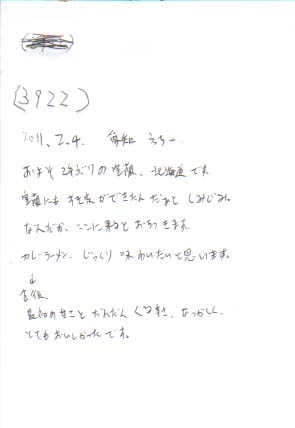 (3922)
2011. 2. 4. 愛知 えっちー
およそ2年ぶりの室蘭、北海道です。
室蘭にもすき家ができたんだなぁとしみじみ。
なんだか、ここに来るとおちつきます。
カレーラーメン、じっくり味わいたいと思います。
↓
食後。
最初の甘さとだんだんくる辛さ、なつかしく、
とてもおいしかったです。